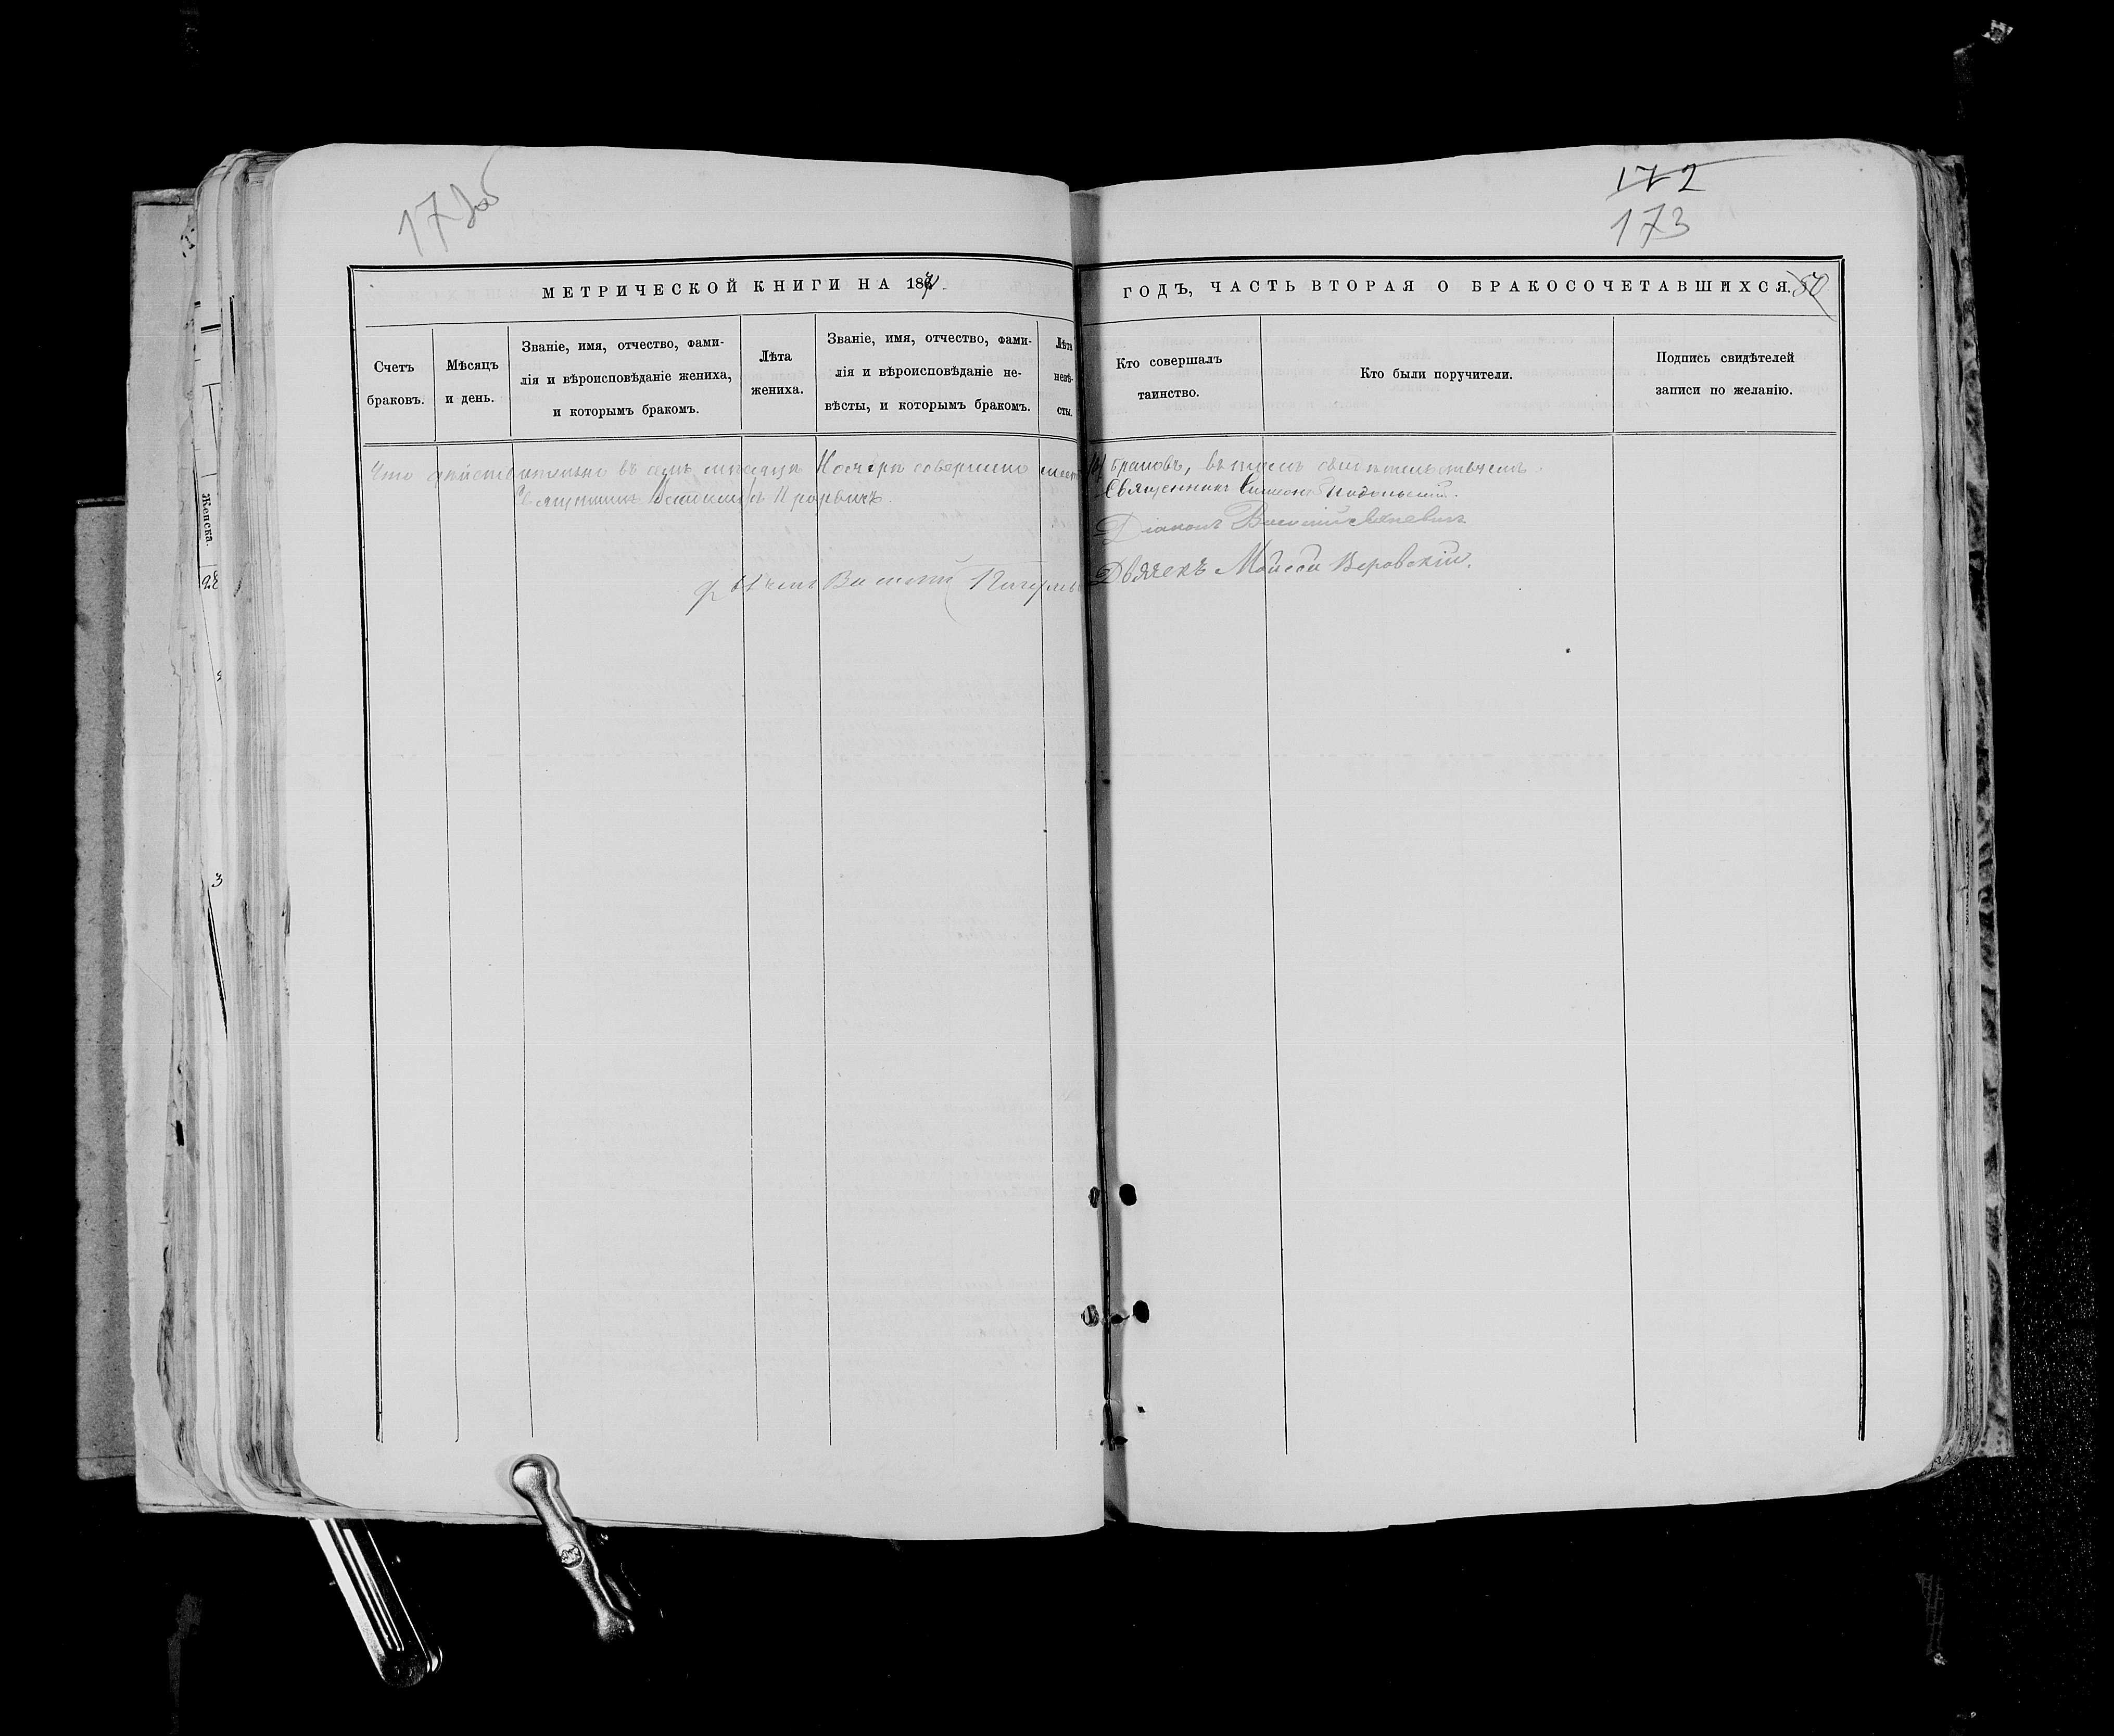 172об
172
173
МЕТРИЧЕСКОЙ КНИГИ НА 187
ГОДЪ, ЧАСТЬ ВТОРАЯ О БРАКОСОЧЕТАВШИХСЯ. 80
Счетъ
браковъ.
Мѣсяцъ
и день.
Званіе, имя, отчество, фами-
лія и вѣроисповѣданіе жениха,
и которымъ бракомъ.
Лѣта
жениха.
Званіе, имя, отчество, фами-
лія и вѣроисповѣданіе не-
вѣсты, и которымъ бракомъ.
Лѣта
невѣ-
сты.
Кто совершалъ
таинство.
Кто были поручители.
Подпись свидѣтелей
записи по желанію.
Что дѣйствительно въ семъ мѣсяцѣ Ноябрѣ совершено браковъ, въ томъ свидѣтельствуемъ.
Священникъ
Священникъ Симеонъ Подольскій.
Діаконъ Василій
Дьячекъ Василій
Дьячекъ Моисей Веровскій.
Женска.
28
3